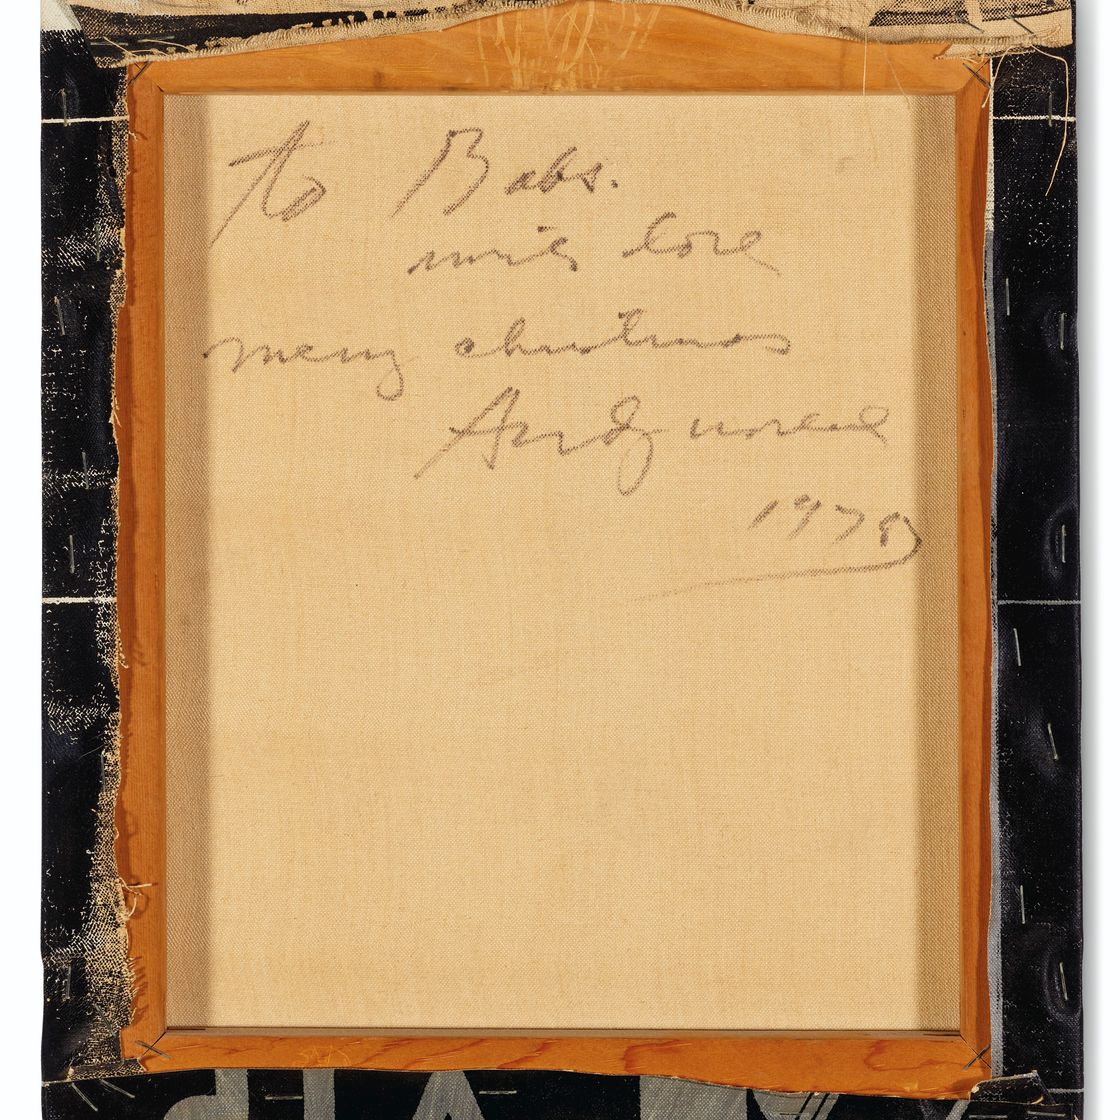 to Babs.
with love
merry christmas
Andy warhol
1978